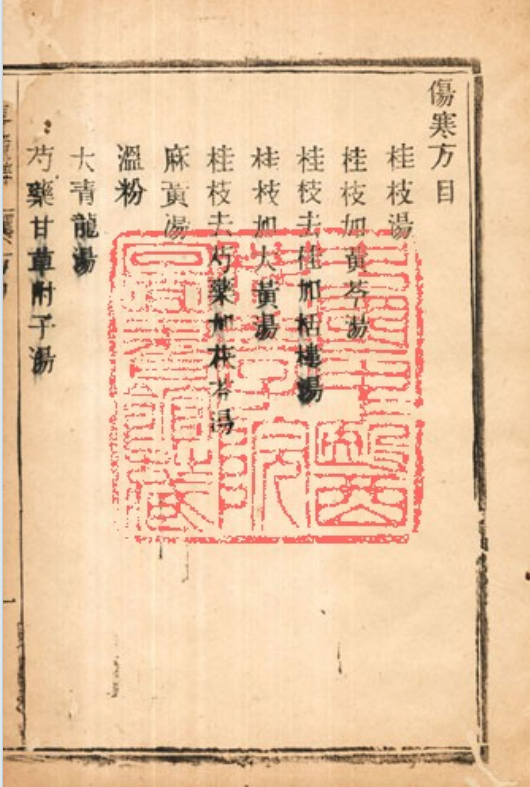 傷寒方目
桂枝湯
桂枝加黃芩湯
桂枝去桂加栝樓湯
桂枝加大黃湯
桂枝去芍藥加茯苓湯
麻黃湯
溫粉
大青龍湯
芍藥甘草附子湯